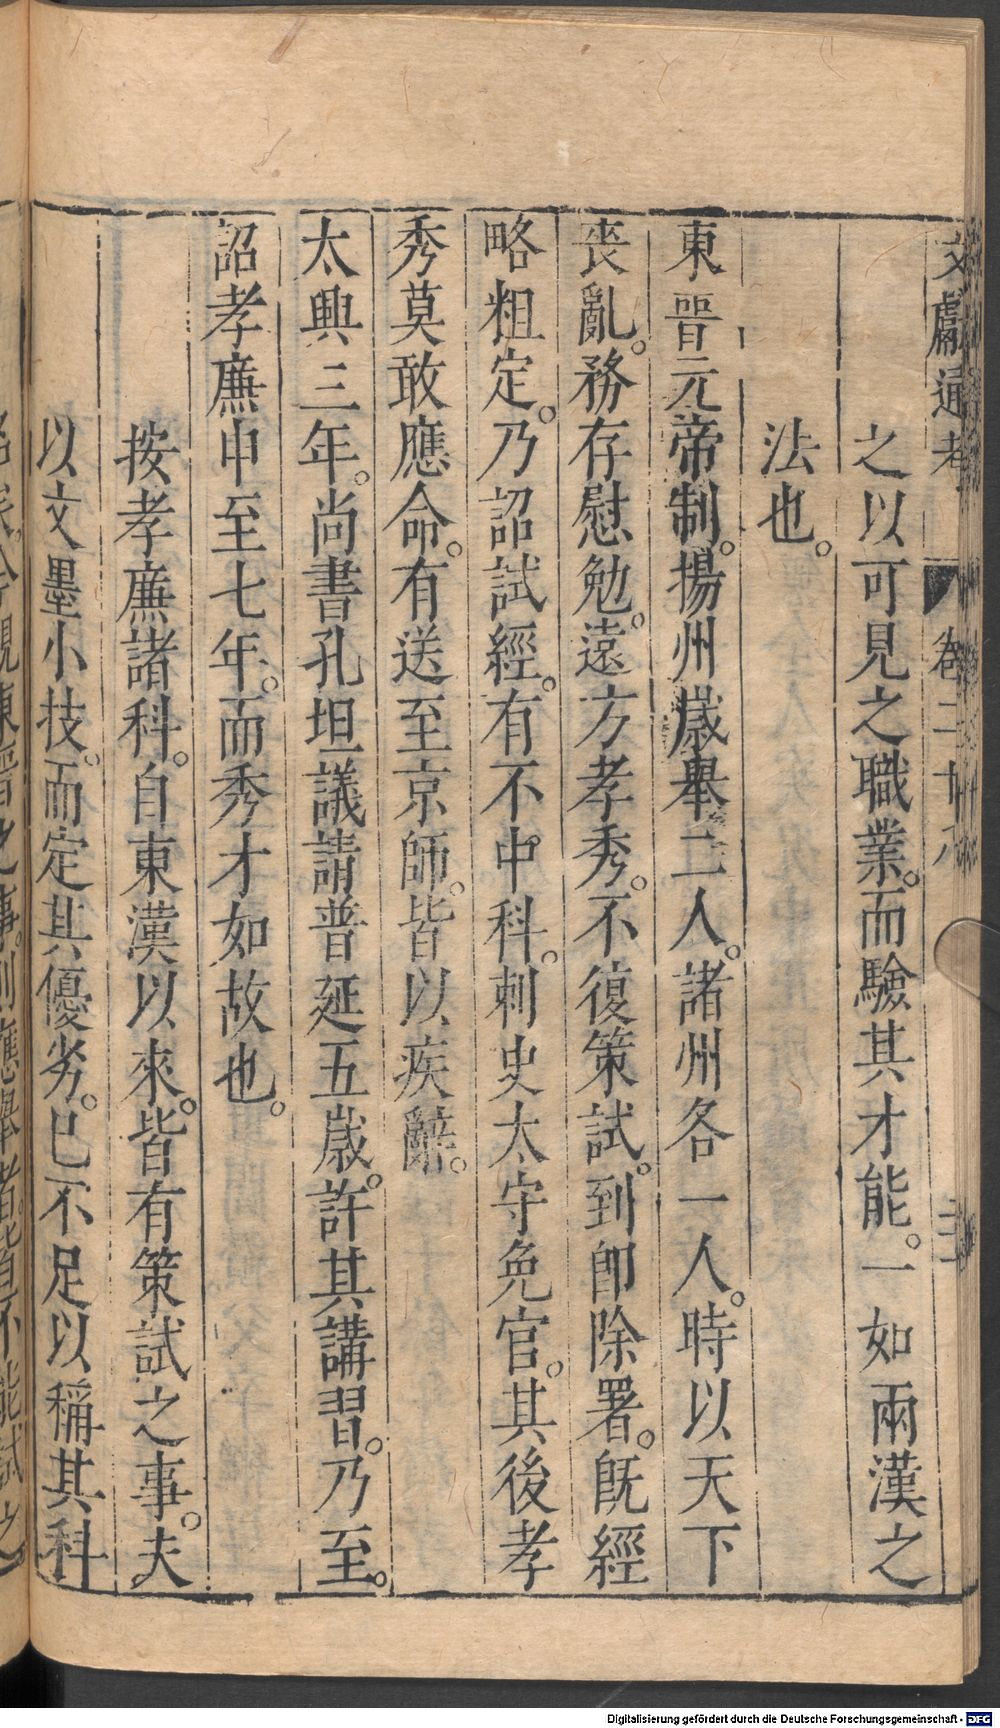 文獻通考 卷二十八
之以可見之職業。而驗其才能。一如兩漢之
法也。
東晉元帝制。揚州歲舉二人。諸州各一人。時以天下
喪亂。務存慰勉。遠方孝秀。不復策試。到卽除署。旣經
略粗定。乃詔試經。有不中科。刺史太守免官。其後孝
秀莫敢應命。有送至京師。皆以疾辭。
太興三年。尚書孔坦議請普延五歲。許其講習。乃至。
詔孝廉申至七年。而秀才如故也。
按孝廉諸科。自東漢以來。皆有策試之事。夫
以文墨小技。而定其優劣。已不足以稱其科
觀東晉之事。則應舉者。能試之
Digitalisierung gefördert durch die Deutsche Forschungsgemeinschaft - DFG